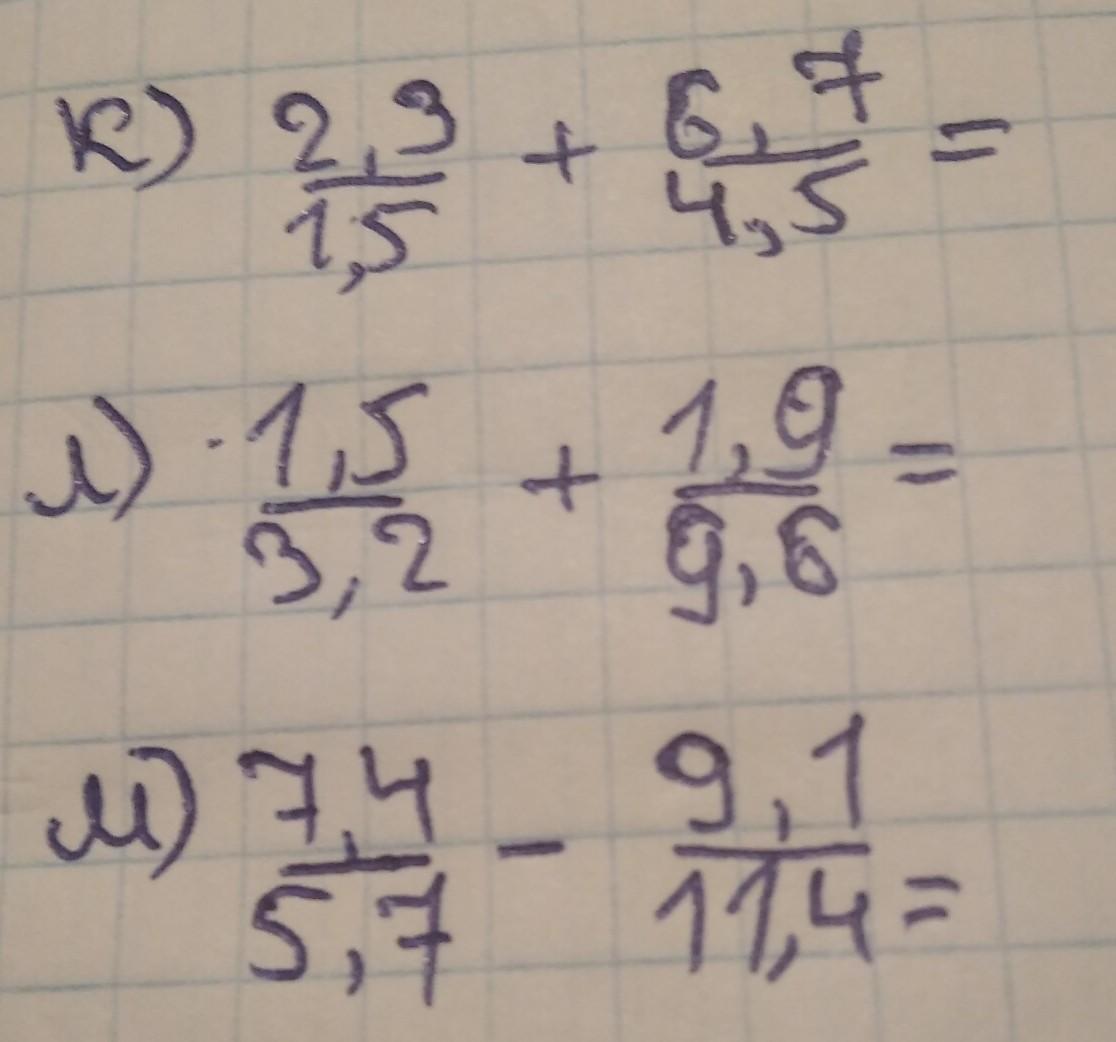 к) 2,3/1,5 + 6,7/4,5 =
л) 1,5/3,2 + 1,9/9,6 =
м) 7,4/5,7 - 9,1/11,4 =